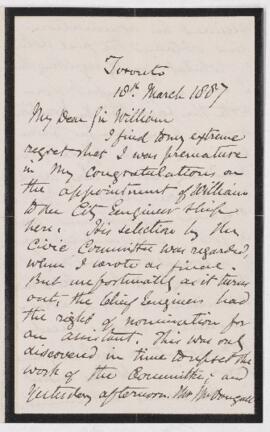 Toronto
18th March 1887
My Dear Sir William
I find to my extreme
regret that I was premature
in my congratulations on
the appointment of William
to the City Engineer ship
here. His selection by the
Civic Committee was regarded,
when I wrote as final.
But unfortunately as it turns
out, the City Engineers had
the right of nomination for
an assistant. This was only
discovered in time to upset the
work of the Committee, and
yesterday afternoon, Mr McDougall